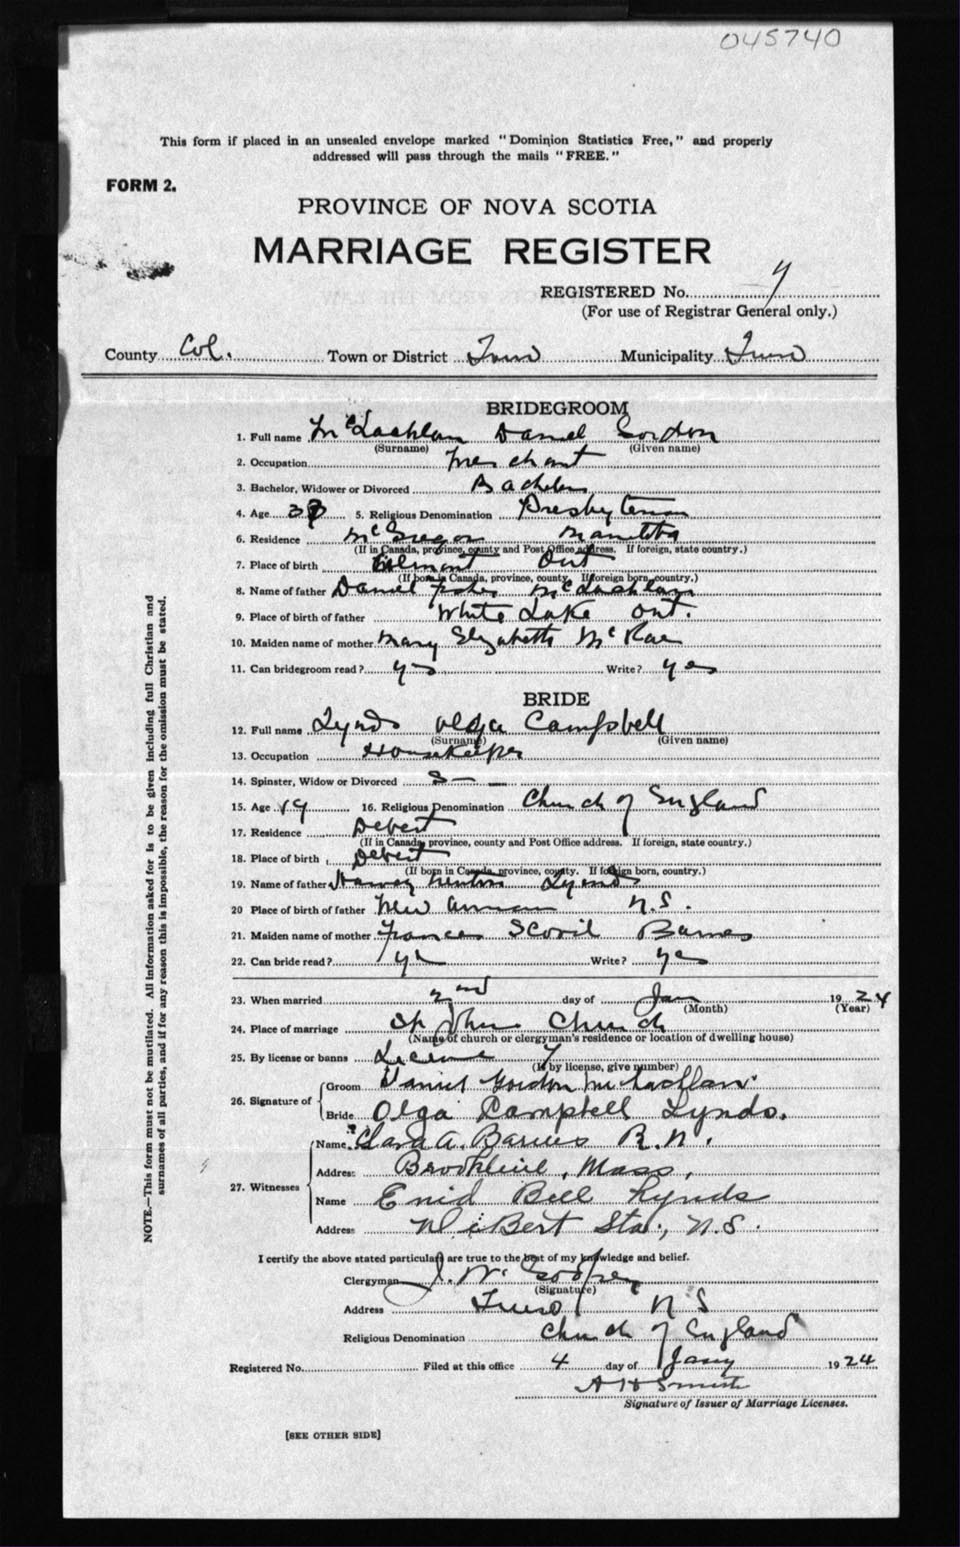 045740
This form if placed in an unsealed envelope marked "Dominion Statistics Free," and properly
addressed will pass through the mails "FREE."
FORM 2.
PROVINCE OF NOVA SCOTIA
MARRIAGE REGISTER
REGISTERED No.
(For use of Registrar General only.)
County Col. Town or District Truro Municipality Truro
BRIDEGROOM
1. Full name McLachlan Daniel Gordon
(Surname) (Given name)
2. Occupation Merchant
3. Bachelor, Widower or Divorced Bachelor
4. Age 5. Religious Denomination Presbyterian
6. Residence McGregor Manitoba
(If in Canada, province, county and Post Office address. If foreign, state country.)
7. Place of birth Ont
(If born in Canada, province, county. If foreign born, country.)
8. Name of father Daniel McLachlan
9. Place of birth of father White Lake Ont.
10. Maiden name of mother Mary Elizabeth McRae
11. Can bridegroom read? yes Write? yes
BRIDE
12. Full name Lynds Olga Campbell
(Surname) (Given name)
13. Occupation Housekeeper
14. Spinster, Widow or Divorced S—
15. Age 19 16. Religious Denomination Church of England
17. Residence Debert
(If in Canada, province, county and Post Office address. If foreign, state country.)
18. Place of birth Debert
(If born in Canada, province, county. If foreign born, country.)
19. Name of father Harvey Newton Lynds
20 Place of birth of father New Annan N.S.
21. Maiden name of mother Frances Scovil Barnes
22. Can bride read? yes Write? yes
23. When married 2nd day of Jan 1924
(Month) (Year)
24. Place of marriage St Johns Church
(Name of church or clergyman's residence or location of dwelling house)
25. By license or banns License
(If by license, give number)
26. Signature of Groom Daniel Gordon McLachlan.
Bride Olga Campbell Lynds.
27. Witnesses Name Clara A. Barnes R.N.
Address Brookline, Mass,
Name Enid Bell Lynds
Address DeBert Sta., N.S.
I certify the above stated particulars are true to the best of my knowledge and belief.
Clergyman J. W. Godfrey
(Signature)
Address Truro N S
Religious Denomination Church of England
Registered No. Filed at this office 4 day of Jany 1924
A H Smith
Signature of Issuer of Marriage Licenses.
[SEE OTHER SIDE]
NOTE.—This form must not be mutilated. All information asked for is to be given including full Christian and
surnames of all parties, and if for any reason this is impossible, the reason for the omission must be stated.